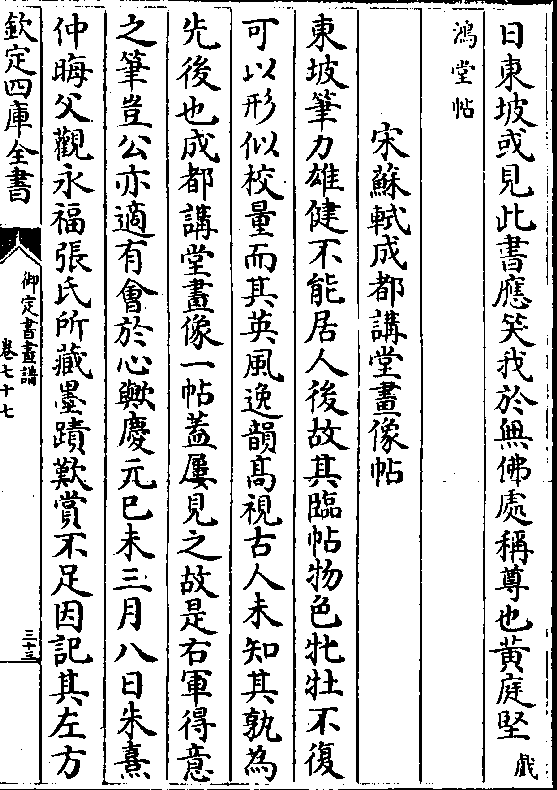 日東坡或見此書應笑我於無佛處稱尊也黄庭堅戲
鴻堂帖
宋蘇軾成都講堂畫像帖
東坡筆力雄健不能居人後故其臨帖物色牝牡不復
可以形似校量而其英風逸韻髙視古人未知其孰為
先後也成都講堂畫像一帖蓋屢見之故是右軍得意
之筆豈公亦適有會於心歟慶元己未三月八日朱熹
仲晦父觀永福張氏所藏墨蹟歎賞不足因記其左方
欽定四庫全書
御定書畫譜
卷七十七
三十三